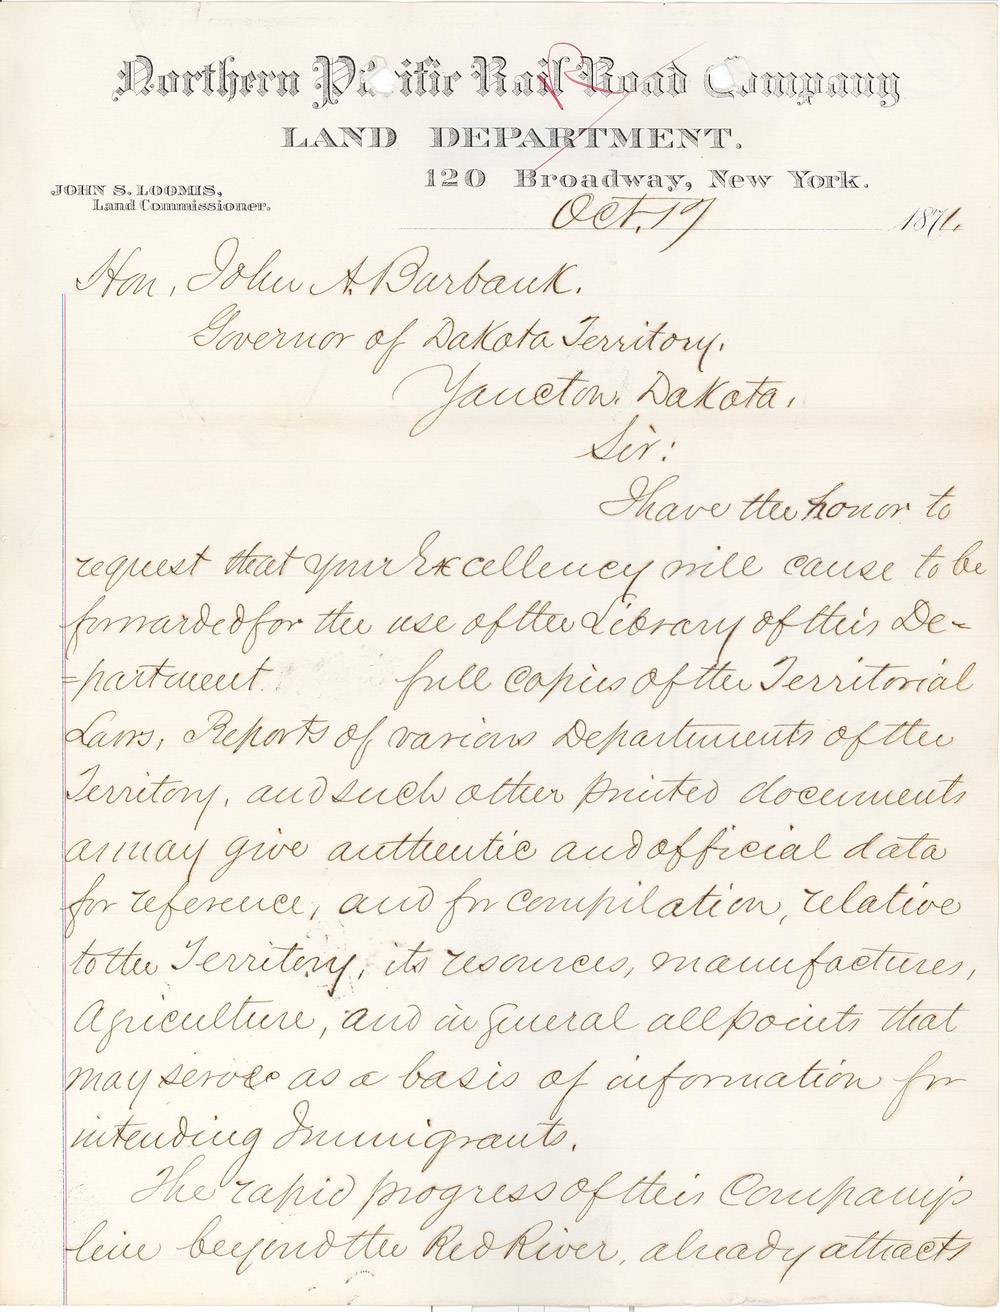 Northern Pacific Rail Road Company
LAND DEPARTMENT.
120 Broadway, New York.
JOHN S. LOOMIS,
Land Commissioner.
Oct. 17 1871.
Hon, John A. Burbank.
Governor of Dakota Territory.
Yancton. Dakota.
Sir:
I have the honor to
request that your Excellency will cause to be
forwarded for the use of the Library of this De-
-partment full copies of the Territorial
Laws, Reports of various Departments of the
Territory, and such other printed documents
as may give authentic and official data
for reference, and for compilation, relative
to the Territory, its resources, manufactures,
Agriculture, and in general all points that
may serve as a basis of information for
intending Immigrants.
The rapid progress of this Company's
line beyond the Red River, already attracts